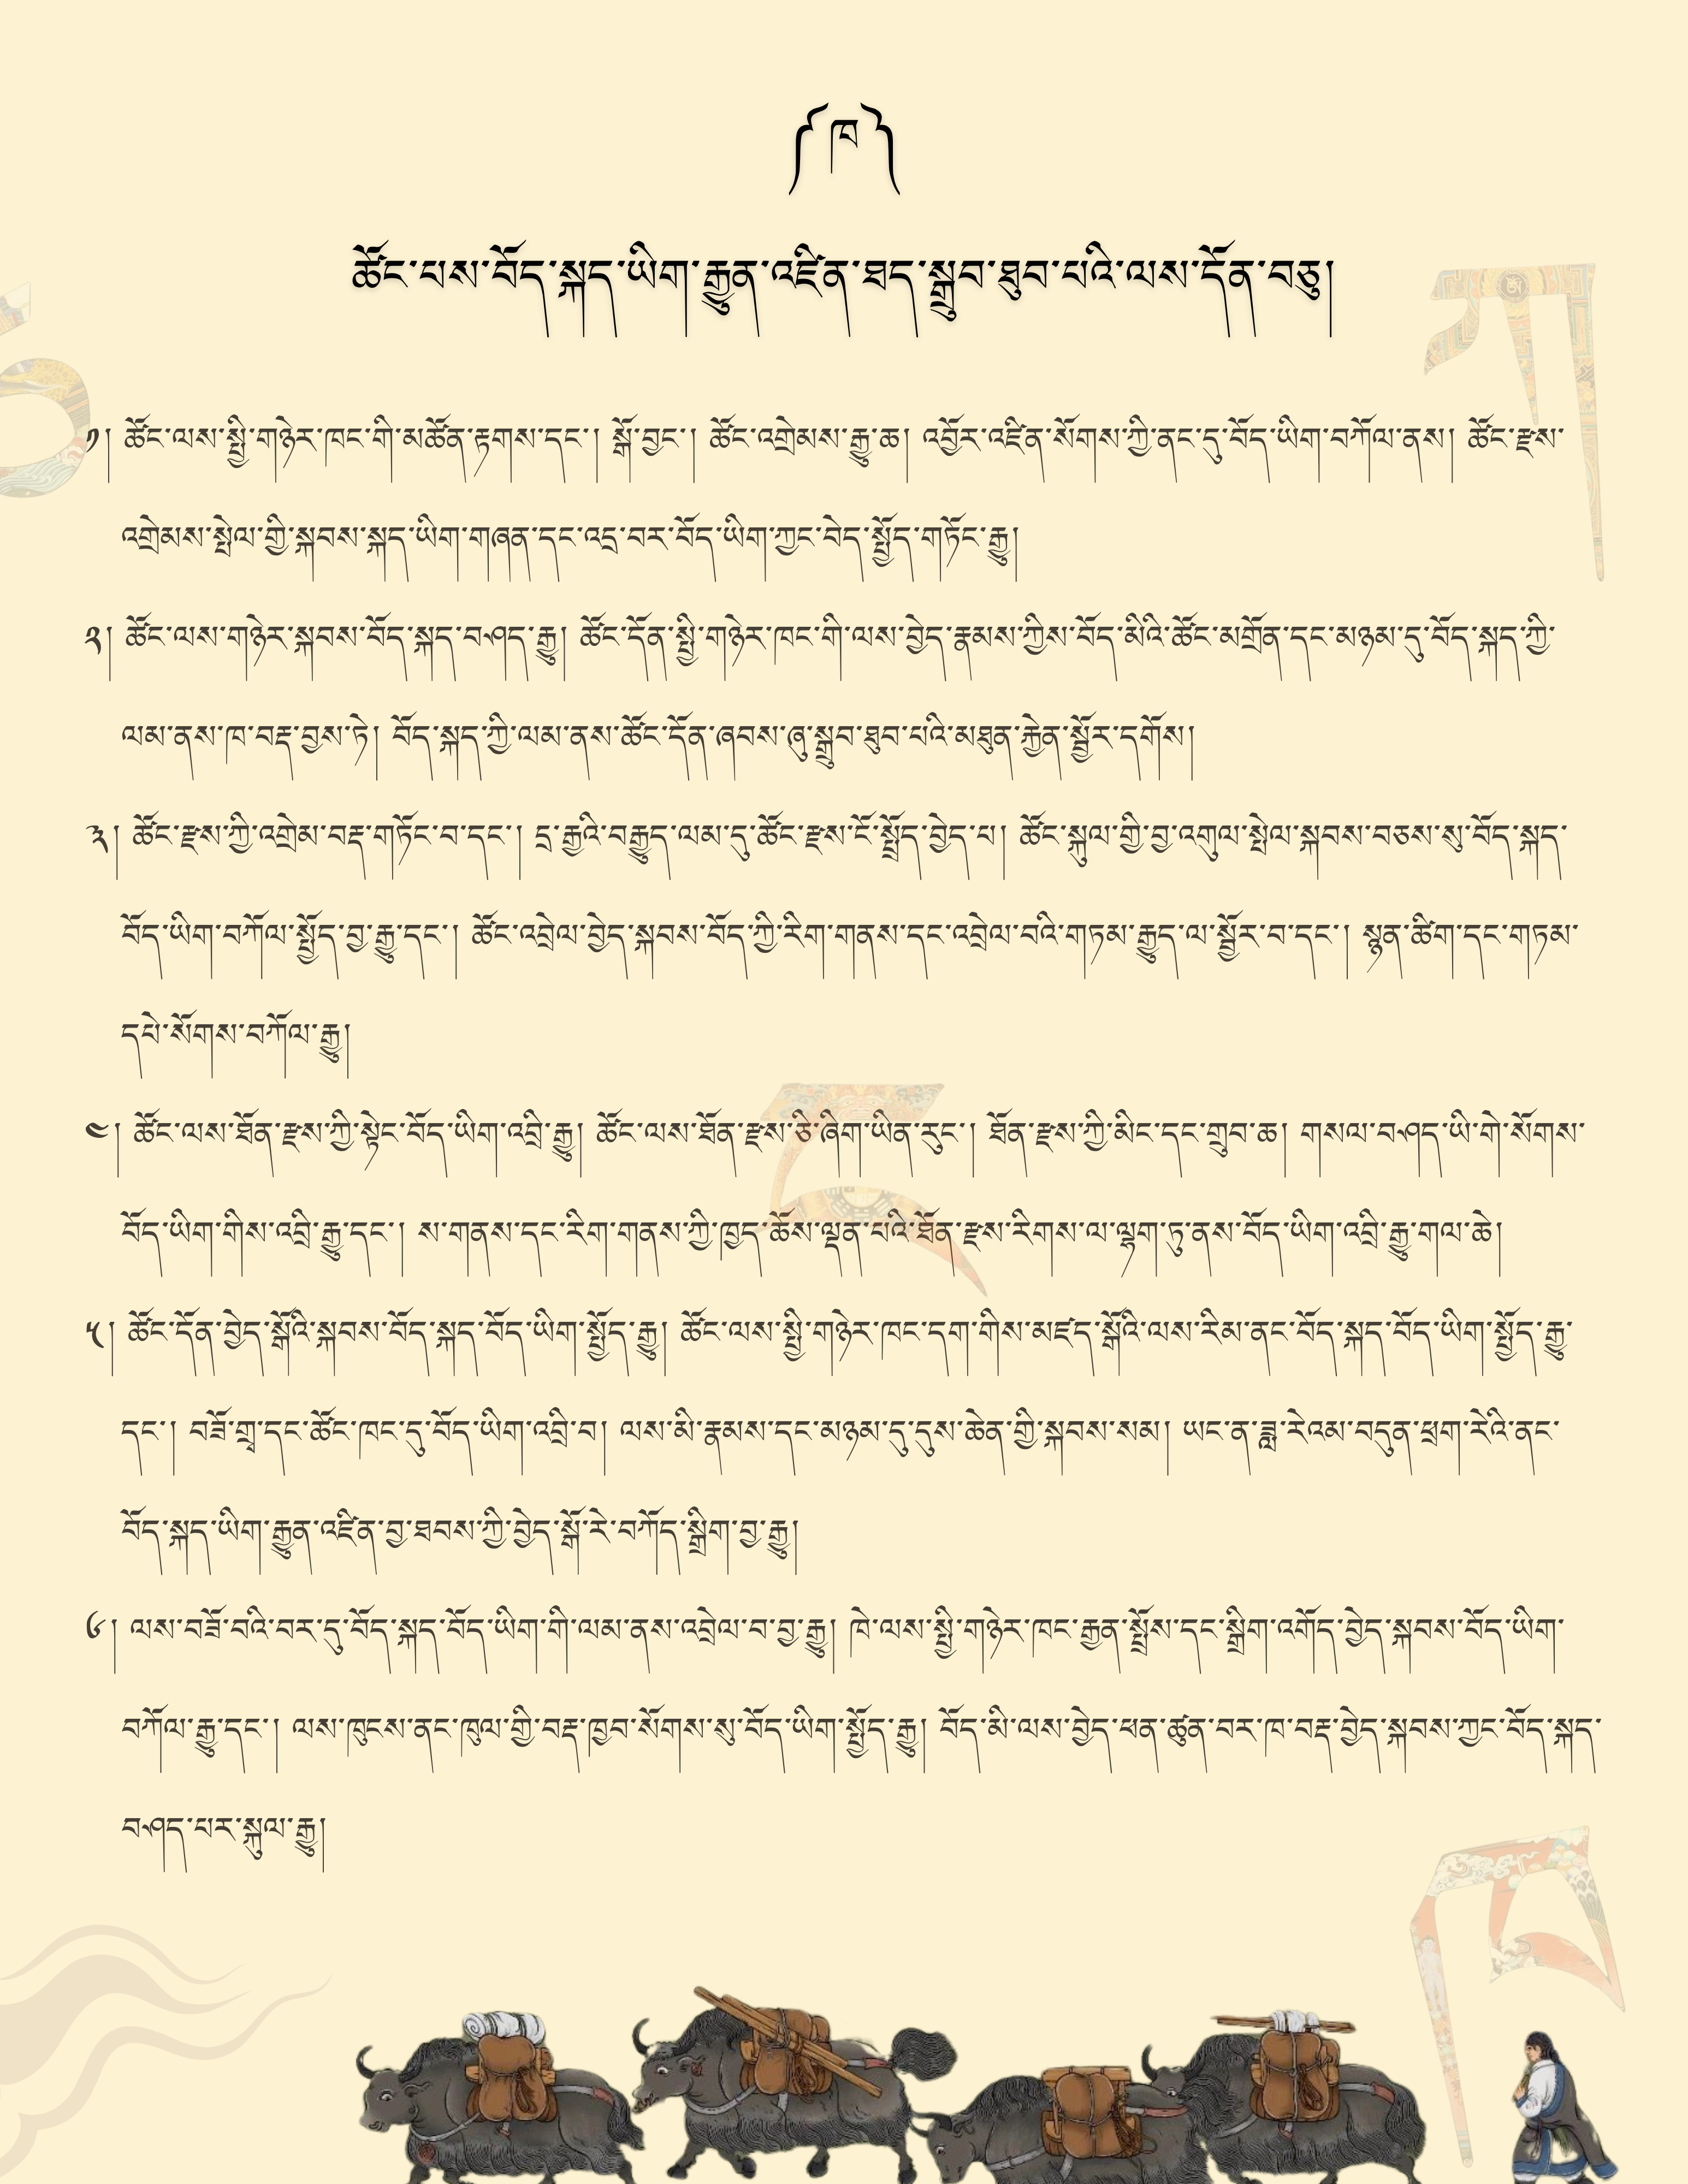 ༼ཁ༽
ཚོང་པས་བོད་སྐད་ཡིག་རྒྱུན་འཛིན་ཐད་སྒྲུབ་ཐུབ་པའི་ལས་དོན་བཅུ།
༡། ཚོང་ལས་སྤྱི་གཉེར་ཁང་གི་མཚོན་རྟགས་དང་། སྒོ་བྱང་། ཚོང་འགྲེམས་རྒྱུ་ཆ། འབྱོར་འཛིན་སོགས་ཀྱི་ནང་དུ་བོད་ཡིག་བཀོལ་ནས། ཚོང་རྫས་
འགྲེམས་སྤེལ་གྱི་སྐབས་སྐད་ཡིག་གཞན་དང་འདྲ་བར་བོད་ཡིག་ཀྱང་བེད་སྤྱོད་གཏོང་རྒྱུ།
༢། ཚོང་ལས་གཉེར་སྐབས་བོད་སྐད་བཤད་རྒྱུ། ཚོང་དོན་སྤྱི་གཉེར་ཁང་གི་ལས་བྱེད་རྣམས་ཀྱིས་བོད་མིའི་ཚོང་མགྲོན་དང་མཉམ་དུ་བོད་སྐད་ཀྱི་
ལམ་ནས་ཁ་བརྡ་བྱས་ཏེ། བོད་སྐད་ཀྱི་ལམ་ནས་ཚོང་དོན་ཞབས་ཞུ་སྒྲུབ་ཐུབ་པའི་མཐུན་རྐྱེན་སྦྱོར་དགོས།
༣། ཚོང་རྫས་ཀྱི་འགྲེམ་བརྡ་གཏོང་བ་དང་། དྲ་རྒྱའི་བརྒྱུད་ལམ་དུ་ཚོང་རྫས་ངོ་སྤྲོད་བྱེད་པ། ཚོང་སྐུལ་གྱི་བྱ་འགུལ་སྤེལ་སྐབས་བཅས་སུ་བོད་སྐད་
བོད་ཡིག་བཀོལ་སྤྱོད་བྱ་རྒྱུ་དང་། ཚོང་འབྲེལ་བྱེད་སྐབས་བོད་ཀྱི་རིག་གནས་དང་འབྲེལ་བའི་གཏམ་རྒྱུད་ལ་སྦྱོར་བ་དང་། སྙན་ཚིག་དང་གཏམ་
དཔེ་སོགས་བཀོལ་རྒྱུ།
༤། ཚོང་ལས་ཐོན་རྫས་ཀྱི་སྟེང་བོད་ཡིག་འབྲི་རྒྱུ། ཚོང་ལས་ཐོན་རྫས་ཅི་ཞིག་ཡིན་རུང་། ཐོན་རྫས་ཀྱི་མིང་དང་གྲུབ་ཆ། གསལ་བཤད་ཡི་གེ་སོགས་
བོད་ཡིག་གིས་འབྲི་རྒྱུ་དང་། ས་གནས་དང་རིག་གནས་ཀྱི་ཁྱད་ཆོས་ལྡན་པའི་ཐོན་རྫས་རིགས་ལ་ལྷག་ཏུ་ནས་བོད་ཡིག་འབྲི་རྒྱུ་གལ་ཆེ།
༥། ཚོང་དོན་བྱེད་སྒོའི་སྐབས་བོད་སྐད་བོད་ཡིག་སྤྱོད་རྒྱུ། ཚོང་ལས་སྤྱི་གཉེར་ཁང་དག་གིས་མཛད་སྒོའི་ལས་རིམ་ནང་བོད་སྐད་བོད་ཡིག་སྤྱོད་རྒྱུ་
དང་། བཟོ་གྲྭ་དང་ཚོང་ཁང་དུ་བོད་ཡིག་འབྲི་བ། ལས་མི་རྣམས་དང་མཉམ་དུ་དུས་ཆེན་གྱི་སྐབས་སམ། ཡང་ན་ཟླ་རེའམ་བདུན་ཕྲག་རེའི་ནང་
བོད་སྐད་ཡིག་རྒྱུན་འཛིན་བྱ་ཐབས་ཀྱི་བྱེད་སྒོ་རེ་བཀོད་སྒྲིག་བྱ་རྒྱུ།
༦། ལས་བཟོ་བའི་བར་དུ་བོད་སྐད་བོད་ཡིག་གི་ལམ་ནས་འབྲེལ་བ་བྱ་རྒྱུ། ཁེ་ལས་སྤྱི་གཉེར་ཁང་རྒྱན་སྤྲོས་དང་སྒྲིག་འགོད་བྱེད་སྐབས་བོད་ཡིག་
བཀོལ་རྒྱུ་དང་། ལས་ཁུངས་ནང་ཁུལ་གྱི་བརྡ་ཁྱབ་སོགས་སུ་བོད་ཡིག་སྤྱོད་རྒྱུ། བོད་མི་ལས་བྱེད་ཕན་ཚུན་བར་ཁ་བརྡ་བྱེད་སྐབས་ཀྱང་བོད་སྐད་
བཤད་པར་སྐུལ་རྒྱུ།